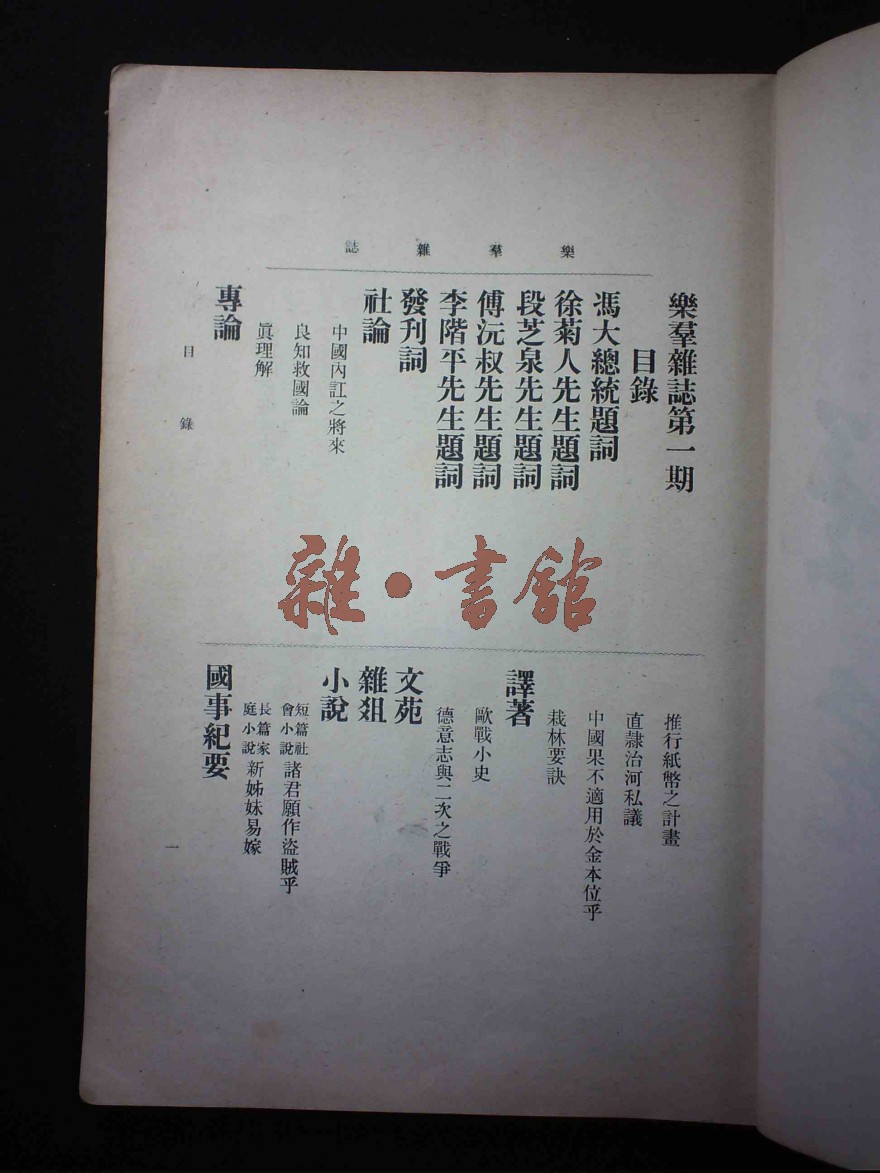 樂羣雜誌
樂羣雜誌第一期
目錄
馮大總統題詞
徐菊人先生題詞
段芝泉先生題詞
傅沅叔先生題詞
李階平先生題詞
發刊詞
社論
中國內訌之將來
良知救國論
眞理解
專論
目錄
雜·書館
推行紙幣之計畫
直隷治河私議
中國果不適用於金本位乎
栽林要訣
譯著
歐戰小史
德意志與二次之戰爭
文苑
雜俎
小說
短篇社會小說諸君願作盜賊乎
長篇家庭小說新姊妹易嫁
國事紀要
一